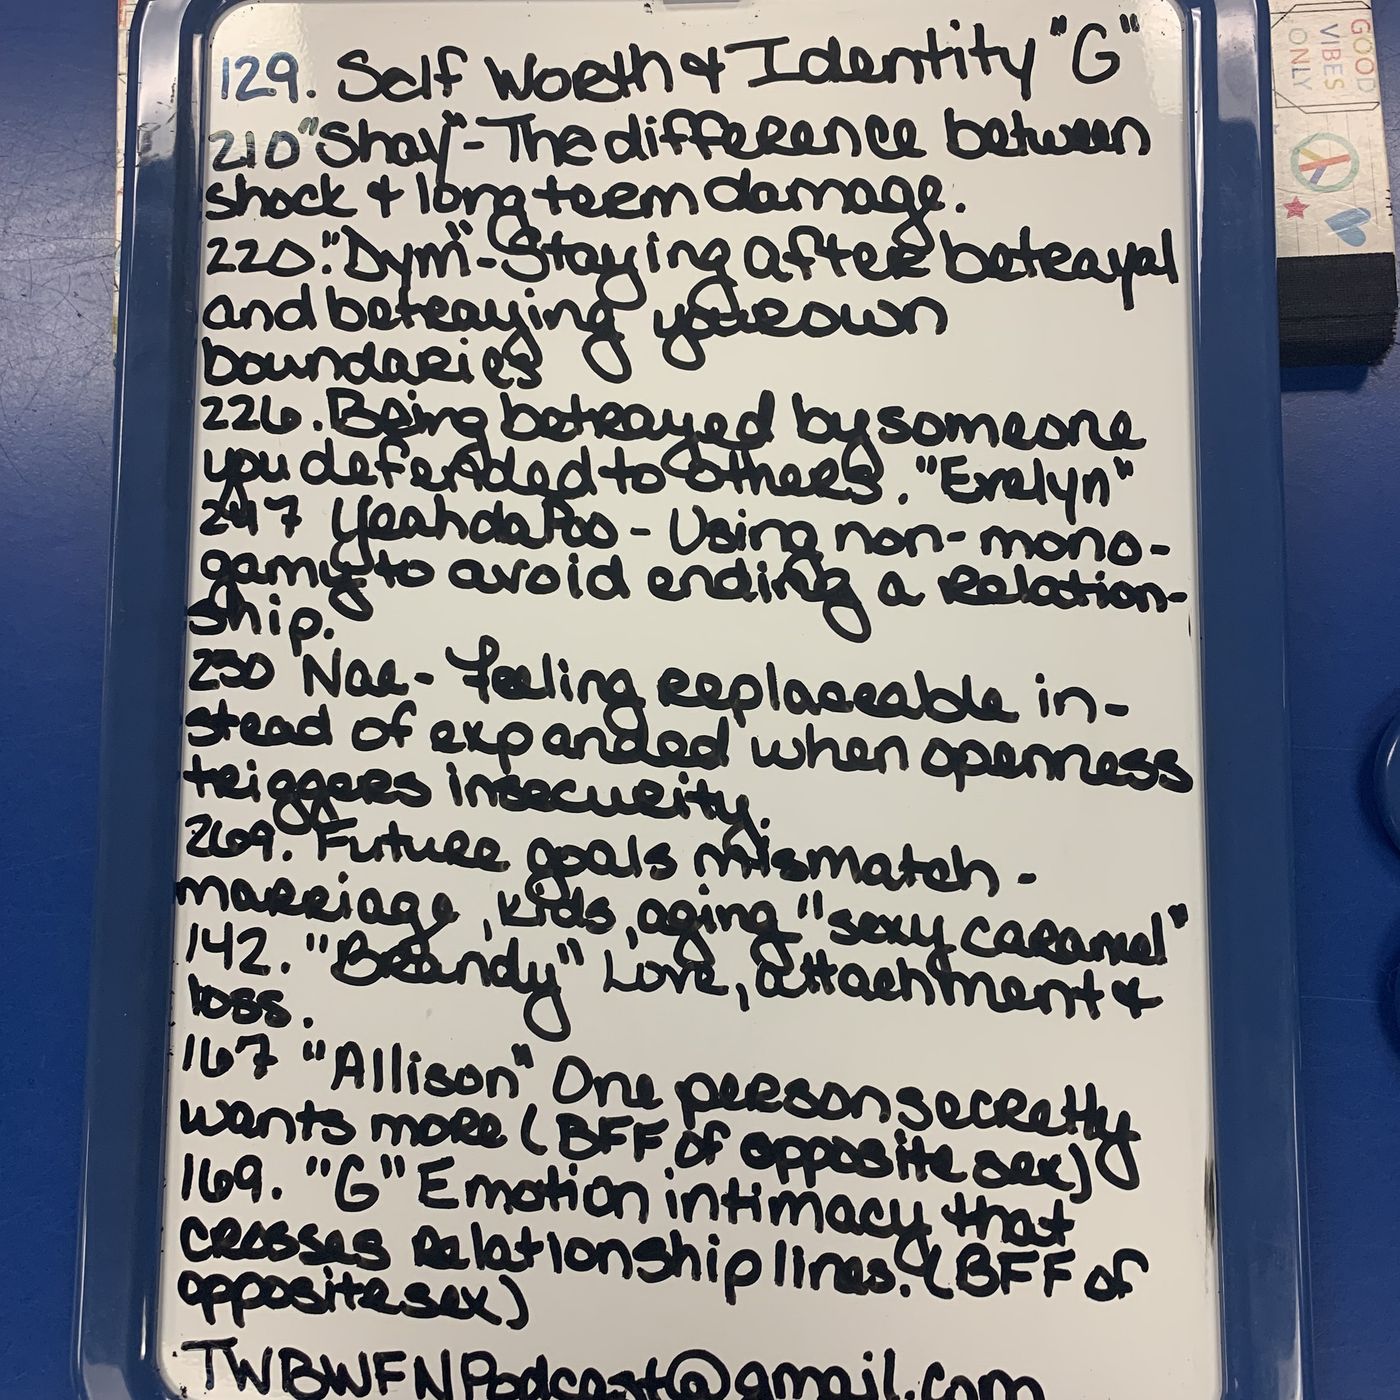 129. Self Worth & Identity "G"
210 "Shay" - The difference between
shock & long term damage.
220. "Dym" - Staying after betrayal
and betraying your own
boundaries
226. Being betrayed by someone
you defended to others. "Evelyn"
247 YeahdaPoo - Using non-mono-
gamy to avoid ending a relation-
ship.
250 Nae - feeling replaceable in-
stead of expanded when openness
triggers insecurity.
269. Future goals mismatch -
marriage, kids, aging "sexy caramel"
142. "Brandy" Love, attachment &
loss.
167 "Allison" One person secretly
wants more (BFF of opposite sex)
169. "G" Emotion intimacy that
crosses relationship lines. (BFF of
opposite sex)
TWBWFNPodcast@gmail.com
GOOD
VIBES
ONLY